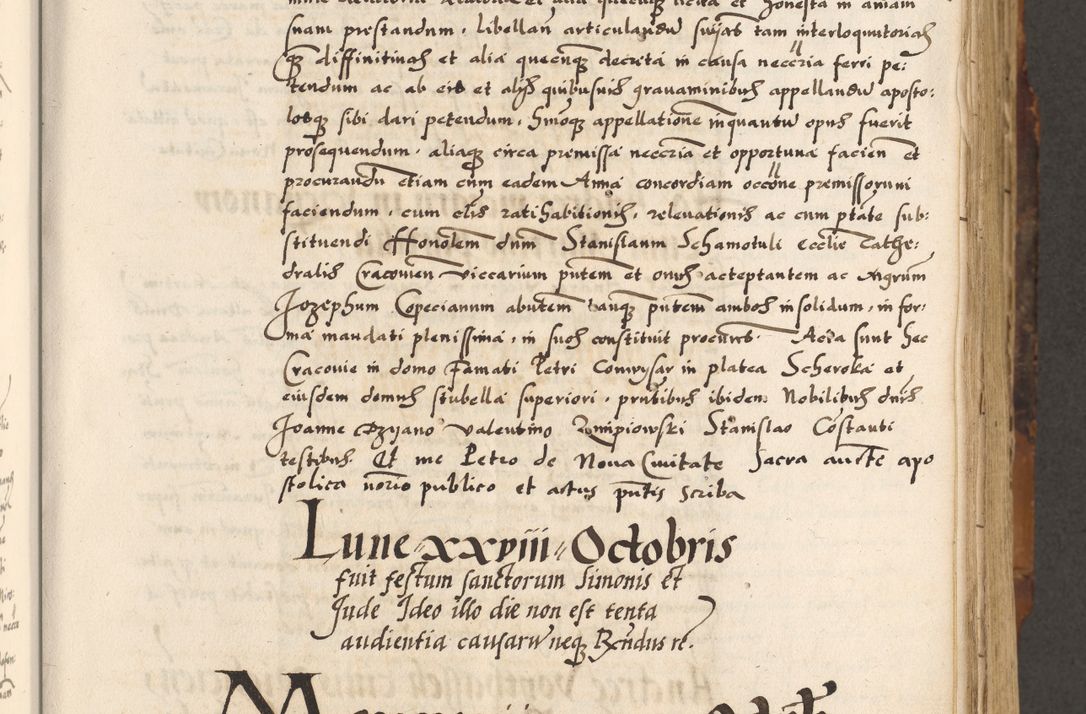 suam prestandum, libellan articulandu suisas tam interloquutorias
q3 diffinitivas et alia quecunq3 decreta in causa neccria ferri pe:
tendum ac ab eis et alijs quibusuis gravaminibus appellandu aposto:
losq3 sibi dari petendum, Smoq3 appellatione inquantu opus fuerit
prosequendum, aliaq3 circa premissa neccria et opportuna facien et
procurandu etiam cum eadem Anna concordiam occone premissorum
faciendum, cum clis ratihabitionis, relevationis ac cum ptate sub:
stituendi Honolem dnm Stanislaum Schamotuli ecclie Cathe:
dralis Cracovien viccarium pntem et onus acceptantem ac Mgrum
Jozephum Copecianum absutem tanq3 pntem ambos insolidum, in for:
ma mandati plenissima, in suos constituit procures. Acta sunt hec
Cracovie in domo famati Petri in platea Scheroka et
eiusdem domus stubella superiori, pntibus ibidem Nobilibus dnis
Joanne valentino Stanislao Costanti
testibus. Et me Petro de Nova Civitate Sacra aucte apo
stolica norio publico et actus pntis scriba
Lune xxviii Octobris
fuit festum sanctorum Simonis et
Jude Ideo illo die non est tenta
audientia causaru neq3 Rndus re.